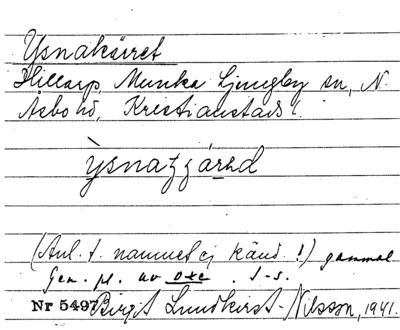 Ysnakärret
Hillarp, Munka Ljungby sn, N.
Åsbo hd, Kristianstads l.
(Anl. t. namnet ej känd !) gammal
Gen. pl. av oxe . J-s.
Nr 5497 Birgit Lundkvist-Nilsson, 1941.